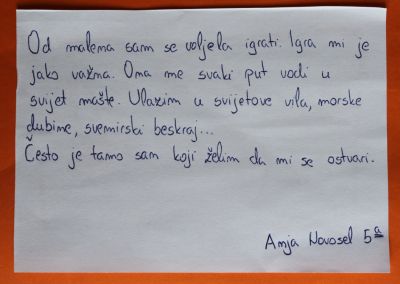 Od malena sam se voljela igrati. Igra mi je
jako važna. Ona me svaki put vodi u
svijet mašte. Ulazim u svjetove vila, morske
dubine, svemirski beskraj...
Često je tamo san koji želim da mi se ostvari.
Anja Novosel 5.a